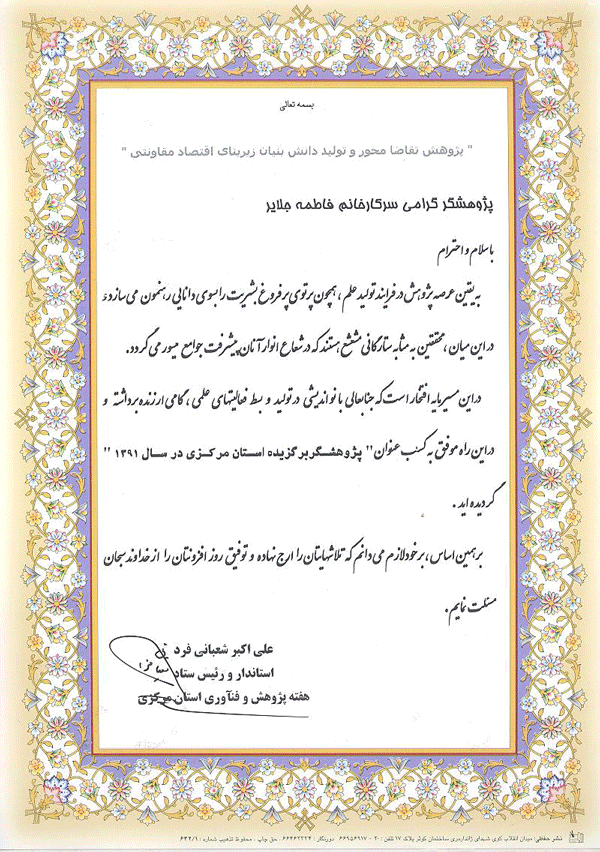 بسمه تعالی
" پژوهش تقاضا محور و تولید دانش بنیان زیربنای اقتصاد مقاومتی "
پژوهشگر گرامی سرکارخانم فاطمه جلایر
باسلام و احترام
به یقین عرصه پژوهش در فرایند تولید علم ، همچون پرتوی پر فروغ بشریت را بسوی دانایی رهنمون می سازد و
در این میان ، محققین به مثابه ستارگانی مشعشع هستند که در شعاع انوار آنان پیشرفت جوامع میسور می گردد.
در این مسیر مایه افتخار است که جنابعالی با نو اندیشی در تولید و بسط فعالیتهای علمی ، گامی ارزنده برداشته و
در این راه موفق به کسب عنوان " پژوهشگر برگزیده استان مرکزی در سال ۱۳۹۱ "
گردیده اید .
بر همین اساس ، بر خود لازم می دانم که تلاشهایتان را ارج نهاده و توفیق روز افزونتان را از خداوند سبحان
مسئلت نمایم .
علی اکبر شعبانی فرد
استاندار و رئیس ستاد
هفته پژوهش و فنآوری استان مرکزی
نشر حقانی: میدان انقلاب کوی شهدای ژاندارمری ساختمان کوثر پلاک ۱۷ تلفن : ۲۰ - ۶۶۹۵۶۹۱۷ دورنگار : ۶۶۴۶۲۲۲۴ حق چاپ ، محفوظ تذهیب شماره : ۶۴۲/۱